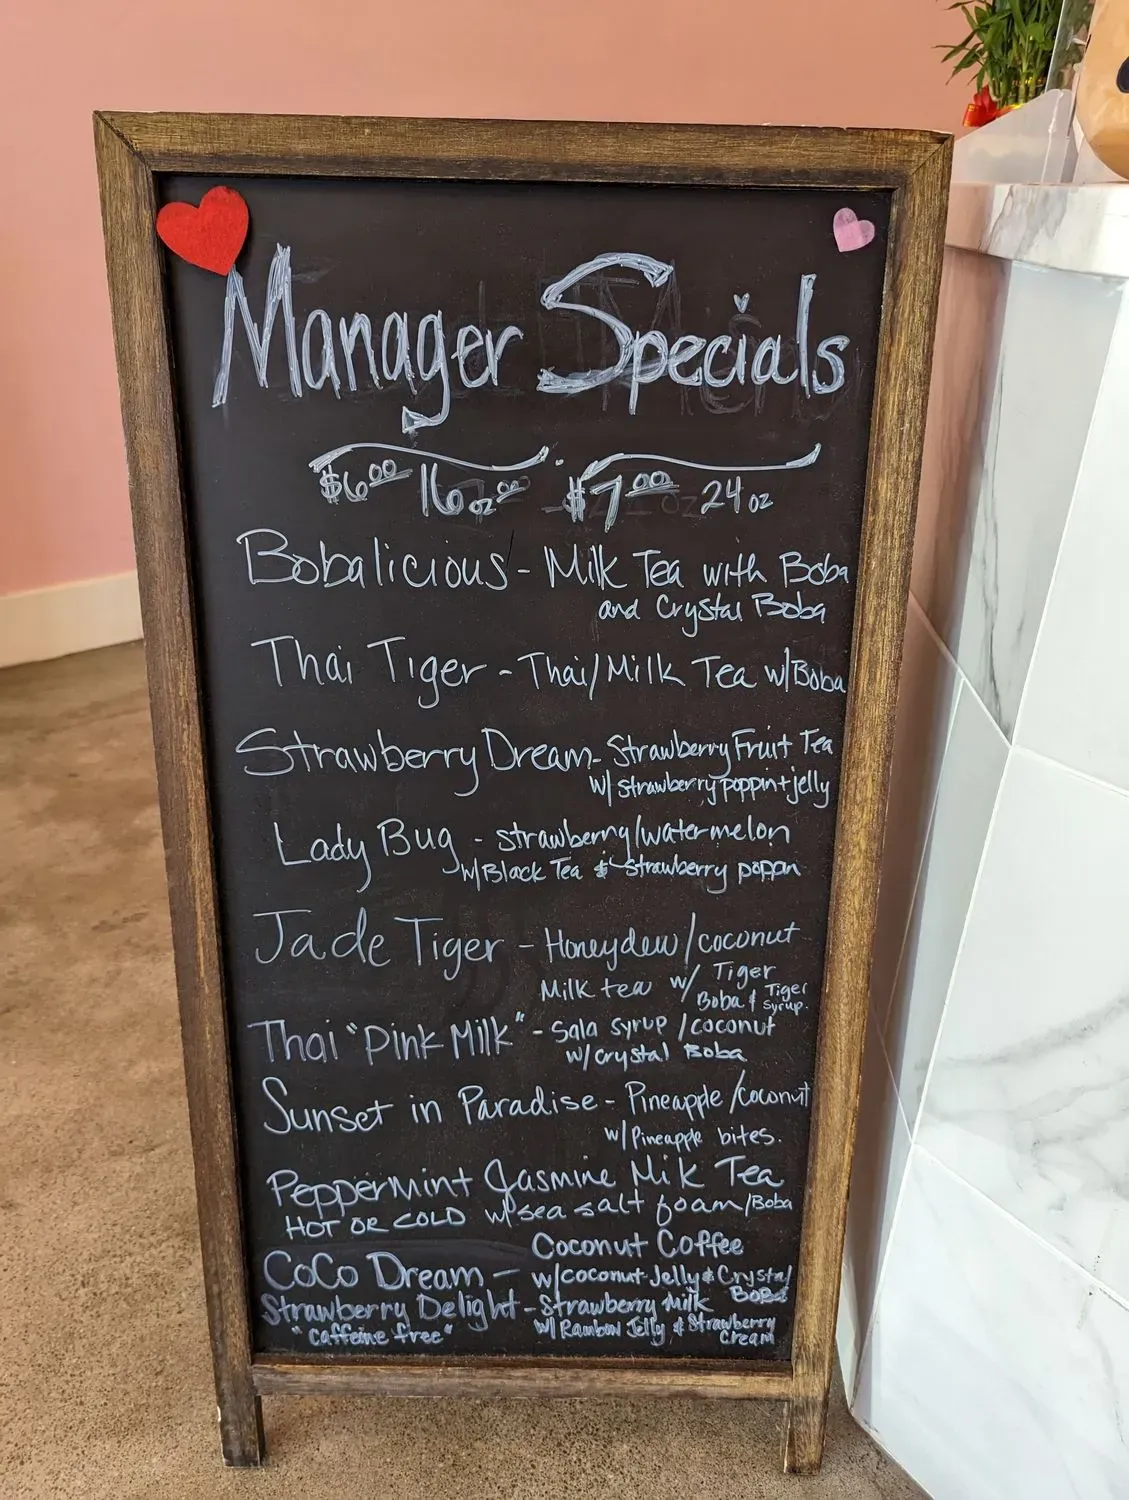 Manager Specials
$6.00 16oz $7.00 24oz
Bobalicious - Milk Tea with Boba
and Crystal Boba
Thai Tiger - Thai/Milk Tea w/Boba
Strawberry Dream - Strawberry Fruit Tea
w/ strawberry poppin+jelly
Lady Bug - strawberry/watermelon
w/Black Tea & strawberry poppin
Jade Tiger - Honeydew/coconut
Milk tea w/ Tiger
Boba & Tiger Syrup.
Thai "Pink Milk" - Sala syrup/coconut
w/crystal Boba
Sunset in Paradise - Pineapple/coconut
w/Pineapple bites.
Peppermint Jasmine Milk Tea
HOT OR COLD w/sea salt foam/Boba
Coconut Coffee
CoCo Dream - w/coconut Jelly & Crystal
Boba
Strawberry Delight - Strawberry Milk
"caffeine free" w/ Rainbow Jelly & Strawberry
Cream